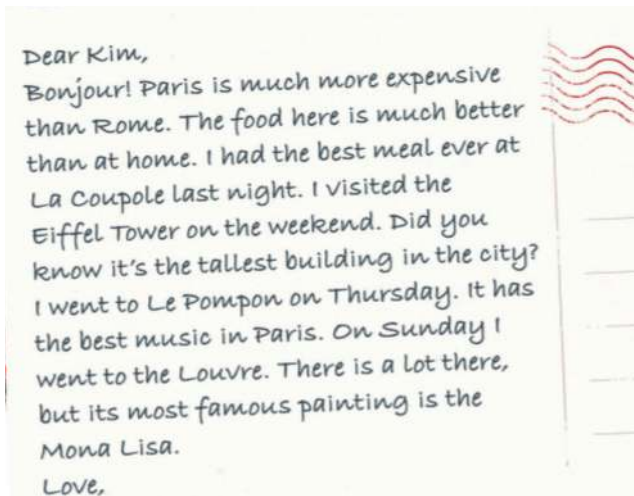 Dear Kim,
Bonjour! Paris is much more expensive
than Rome. The food here is much better
than at home. I had the best meal ever at
La Coupole last night. I visited the
Eiffel Tower on the weekend. Did you
know it's the tallest building in the city?
I went to Le Pompon on Thursday. It has
the best music in Paris. On Sunday I
went to the Louvre. There is a lot there,
but its most famous painting is the
Mona Lisa.
Love,